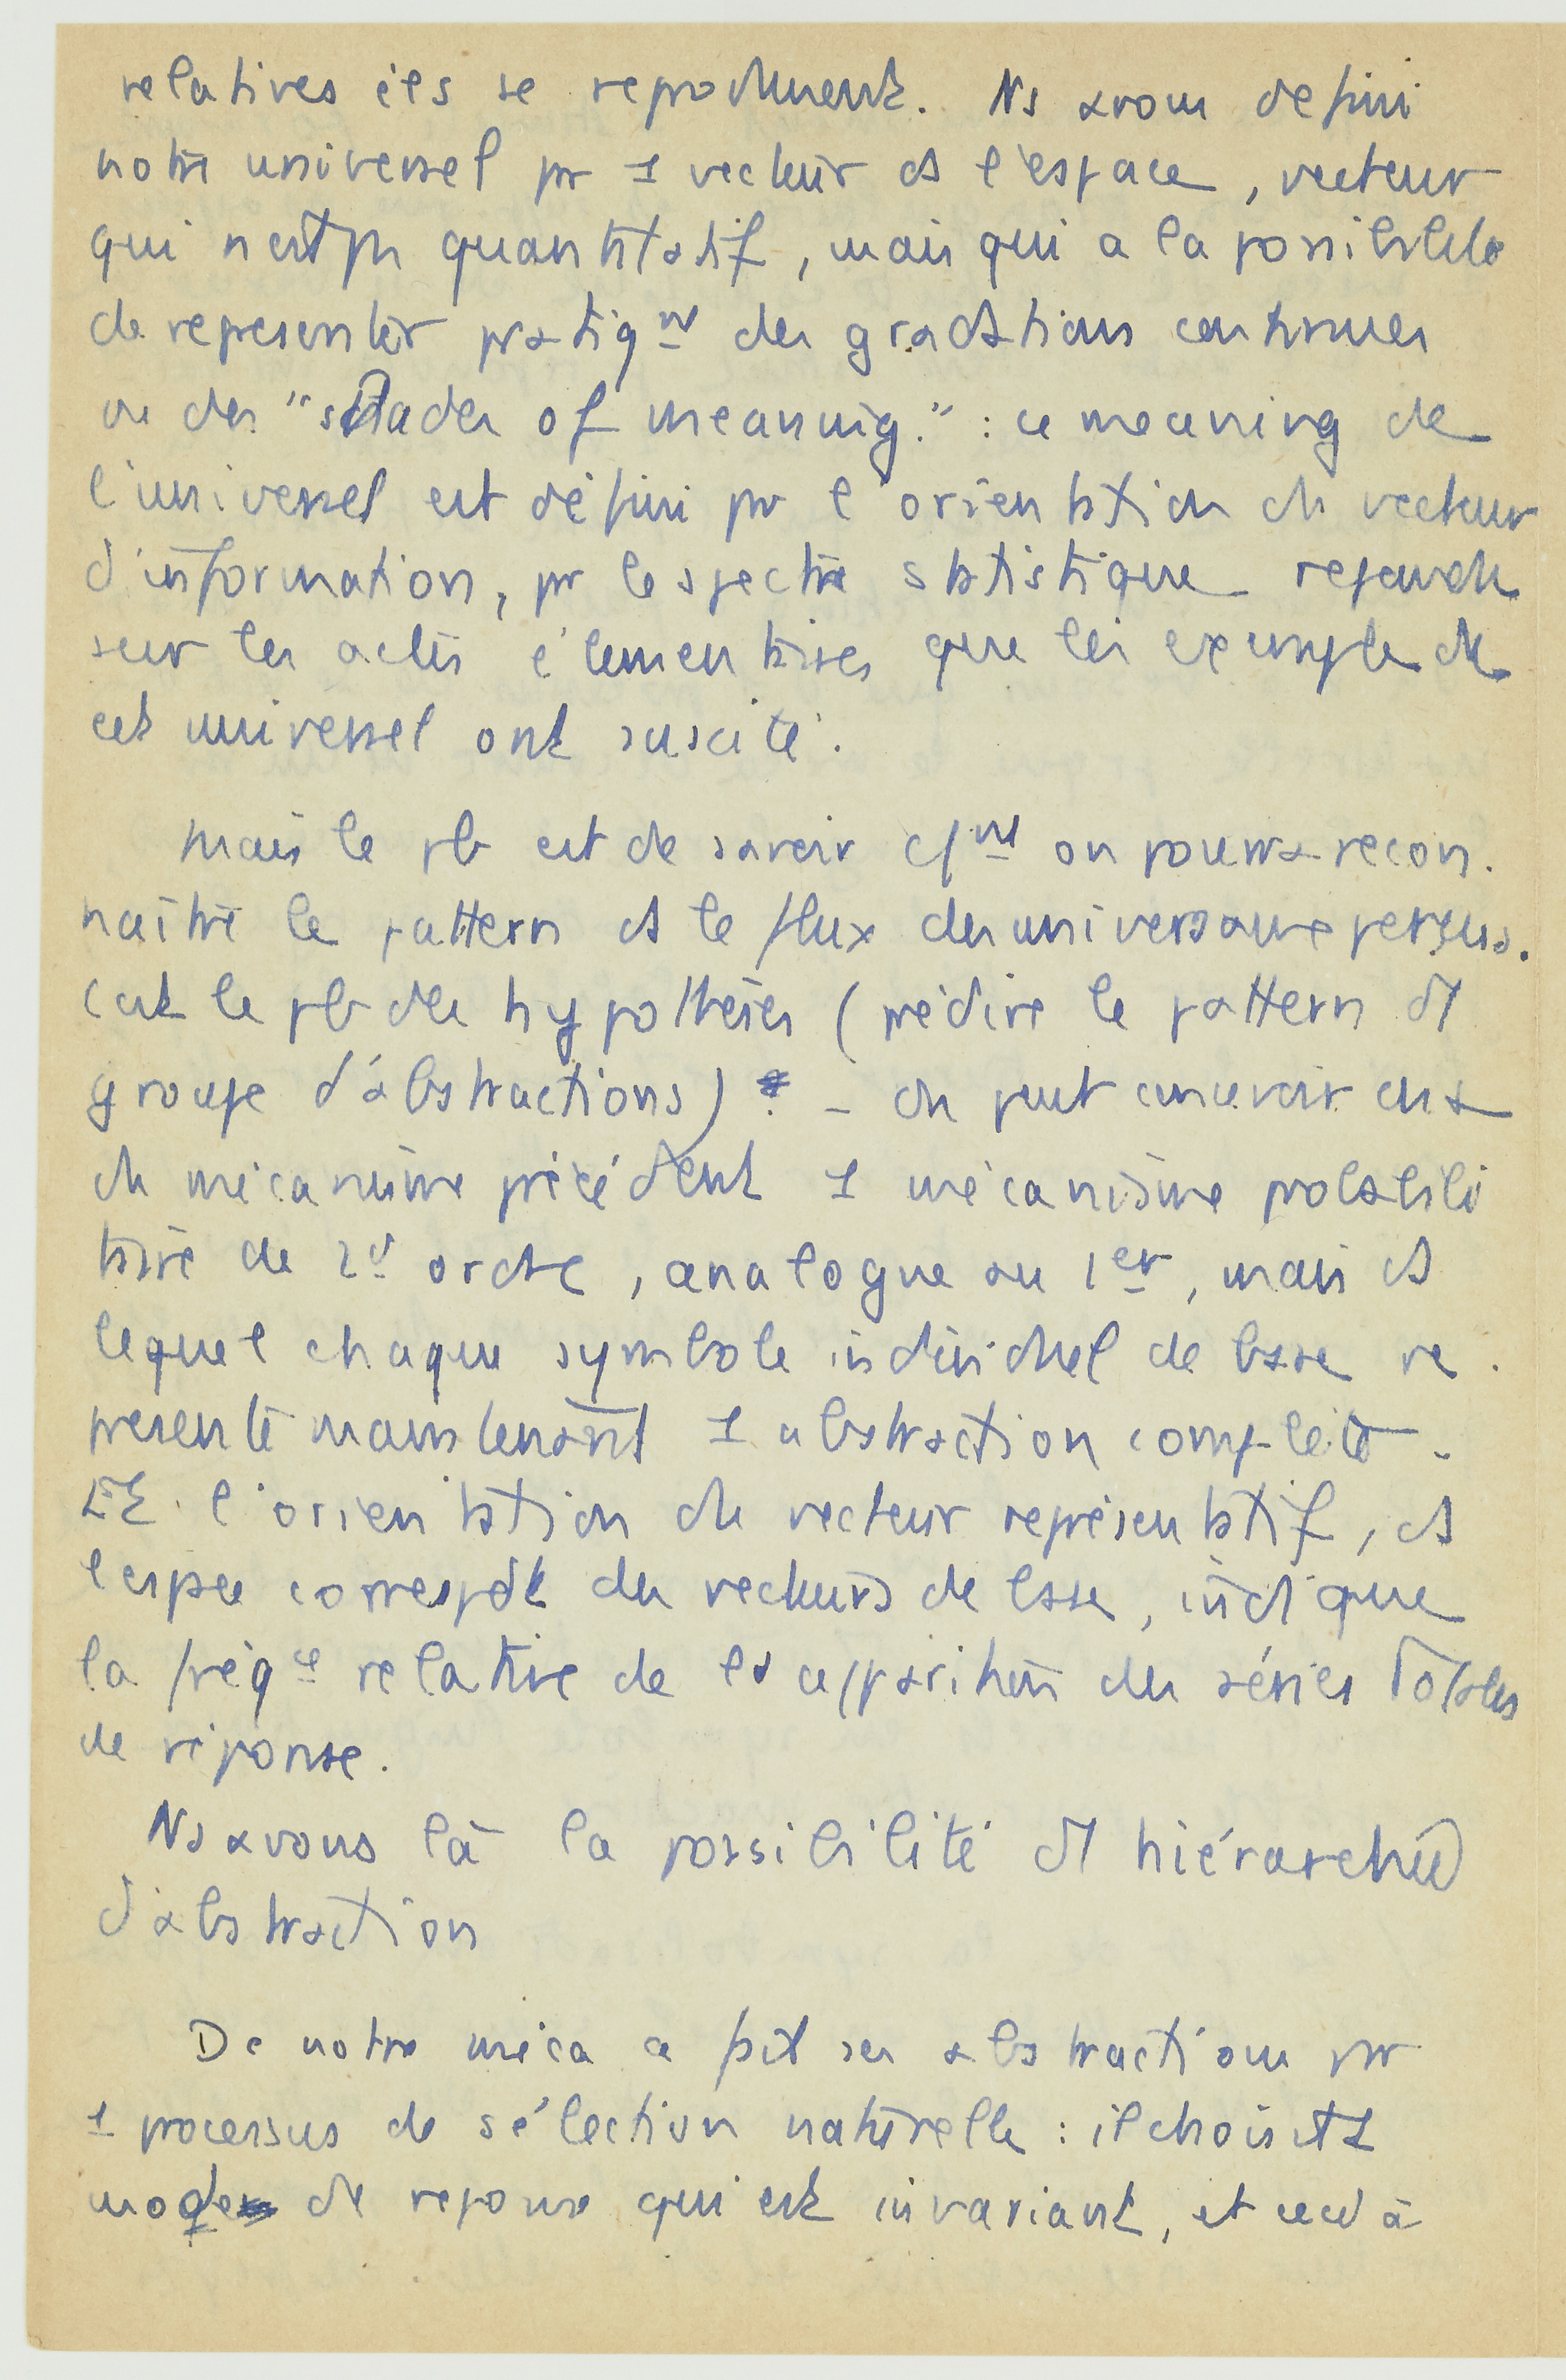 relatives ils se reproduisent. Ns avons défini
notre universel pr 1 vecteur ds l'espace, vecteur
qui n'est pas quantitatif, mais qui a la possibilité
de représenter pratiqnt des gradations continues
ou des "shades of meaning." : ce meaning de
l'universel est défini pr l'orientation du vecteur
d'information, pr le spectre statistique répandu
sur les actes élémentaires que les exemples de
cet universel ont suscité.
Mais le pb est de savoir cmnt on pourra recon-
naître le pattern ds le flux des universaux perçus.
C'est le pb des hypothèses (prédire le pattern d'1
groupe d'abstractions). - On peut concevoir au delà
du mécanisme précédent 1 mécanisme probabili
taire de 2d ordre, analogue au 1er, mais ds
lequel chaque symbole individuel de base re-
présente maintenant 1 abstraction complète.
Et l'orientation du vecteur représentatif, ds
l'espace correspdt des vecteurs de base, indique
la fréqce relative de l'apparition des séries totales
de réponse.
Ns avons là la possibilité d'1 hiérarchie
d'abstraction
Dc notre méca a fait ses abstractions pr
1 processus de sélection naturelle : il choisit 1
mode de réponse qui est invariant, et ceci à